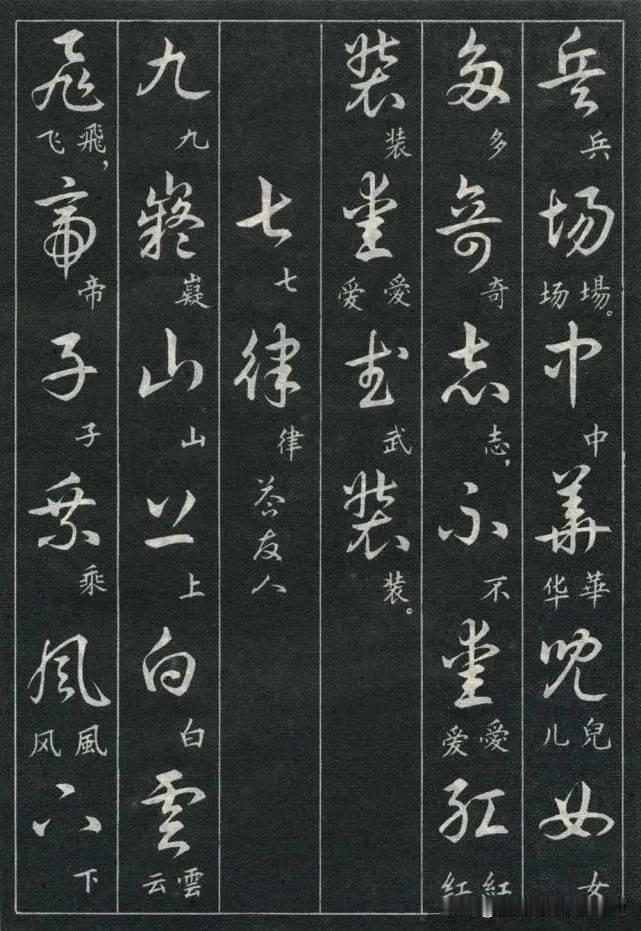 兵場中華兒女
兵場场。中華华兒儿女
多奇志不愛紅
多奇志，不愛爱紅红
装愛武装
装愛爱武装。
七律
七律答友人
九嶷山上白雲
九嶷山上白雲云
飛帝子乘風下
飛，飞帝子乘風风下